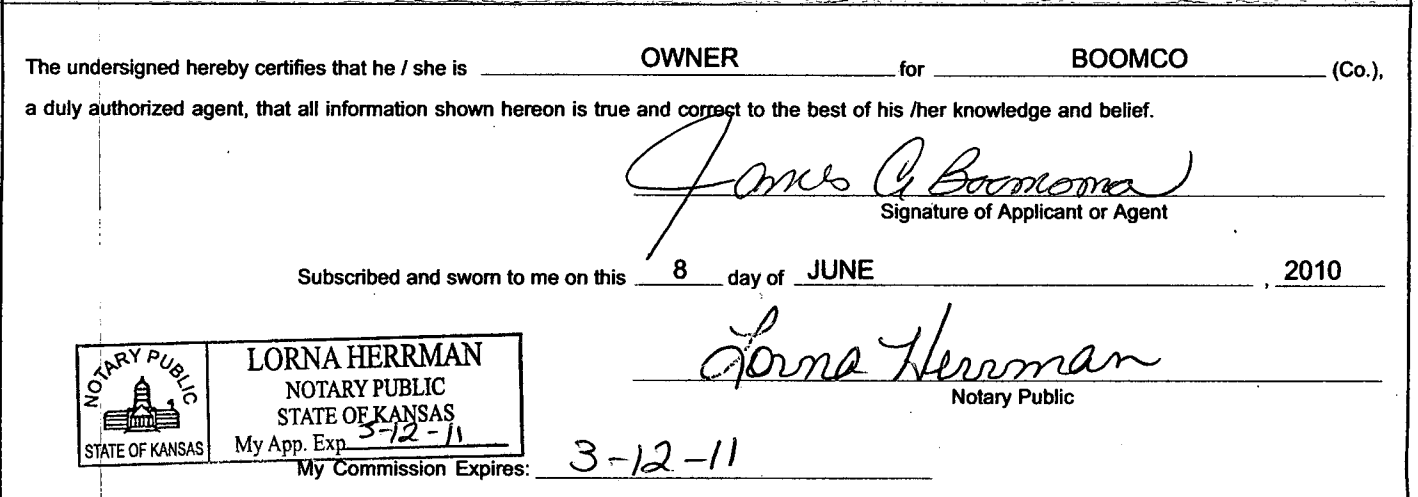 The undersigned hereby certifies that he / she is OWNER for BOOMCO (Co.),
a duly authorized agent, that all information shown hereon is true and correct to the best of his /her knowledge and belief.
James G Boomoma
Signature of Applicant or Agent
Subscribed and sworn to me on this 8 day of JUNE , 2010
Lorna Herrman
Notary Public
NOTARY PUBLIC
STATE OF KANSAS
LORNA HERRMAN
NOTARY PUBLIC
STATE OF KANSAS
My App. Exp. 3-12-11
My Commission Expires: 3-12-11